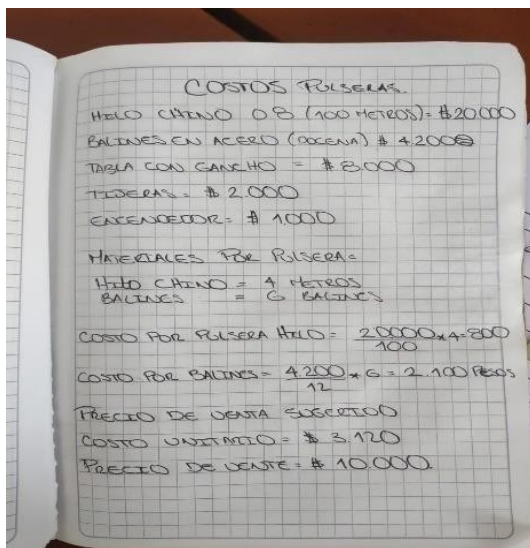 COSTOS PULSERAS.
HILO CHINO 08 (100 METROS)= $20000
BALINES EN ACERO (DOCENA) $ 4.200
TABLA CON GANCHO = $8.000
TIJERAS = $ 2.000
ENCENDEDOR= $ 1000
MATERIALES POR PULSERA=
HILO CHINO = 4 METROS
BALINES = 6 BALINES
COSTO POR PULSERA HILO= 20000/100*4=800
COSTO POR BALINES= 4.200/12 * 6 = 2.100 PESOS
PRECIO DE VENTA SUGERIDO
COSTO UNITATIO = $ 3.120
PRECIO DE VENTE= $ 10.000.